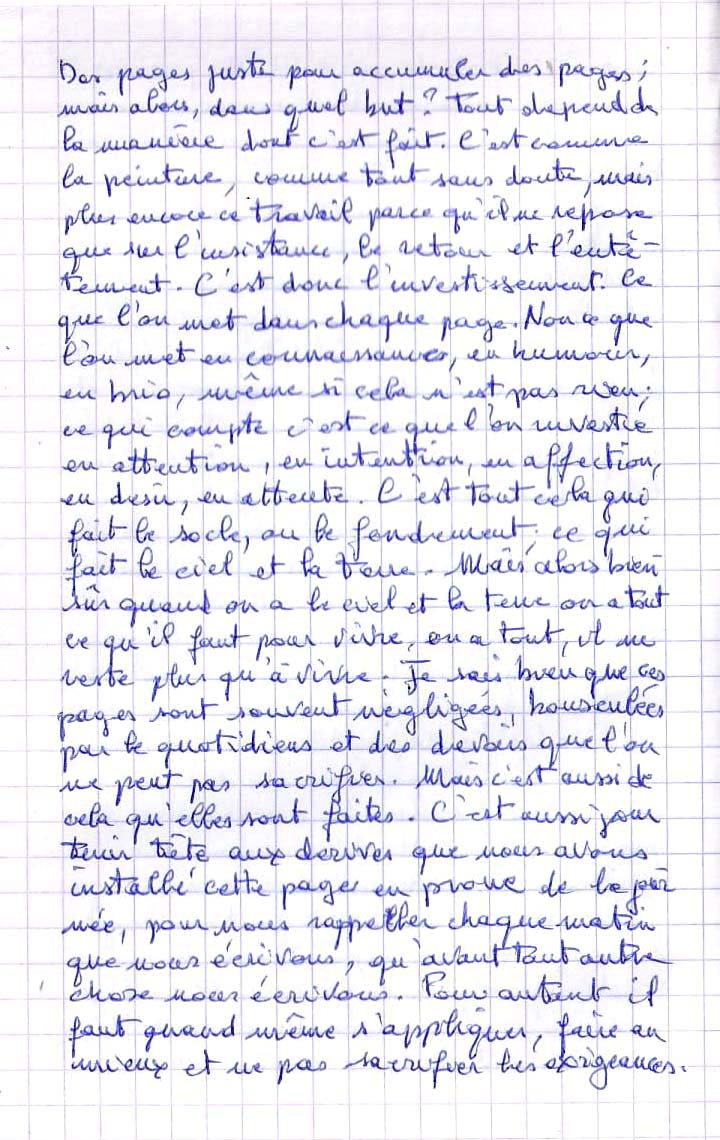 Des pages juste pour accumuler des pages ;
mais alors, dans quel but ? Tout dépend de
la manière dont c'est fait. C'est comme
la peinture, comme tout sans doute, mais
plus encore ce travail parce qu'il ne repose
que sur l'insistance, le retour et l'entê-
tement. C'est donc l'investissement. Ce
que l'on met dans chaque page. Non ce que
l'on met en connaissances, en humour,
en brio, même si cela n'est pas rien ;
ce qui compte c'est ce que l'on investie
en attention, en intention, en affection,
en désir, en attente. C'est tout cela qui
fait le socle, ou le fondement ; ce qui
fait le ciel et la terre. Mais alors bien
sûr quand on a le ciel et la terre on a tout
ce qu'il faut pour vivre, on a tout, il ne
reste plus qu'à vivre. Je sais bien que ces
pages sont souvent négligées, bousculées
par le quotidiens et des devoirs que l'on
ne peut pas sacrifier. Mais c'est aussi de
cela qu'elles sont faites. C'est aussi pour
tenir tête aux dérives que nous avons
installé cette page en proue de la jour
née, pour nous rappeller chaque matin
que nous écrivons, qu'avant tout autre
chose nous écrivons. Pour autant il
faut quand même s'appliquer, faire au
mieux et ne pas sacrifier les exigeances.